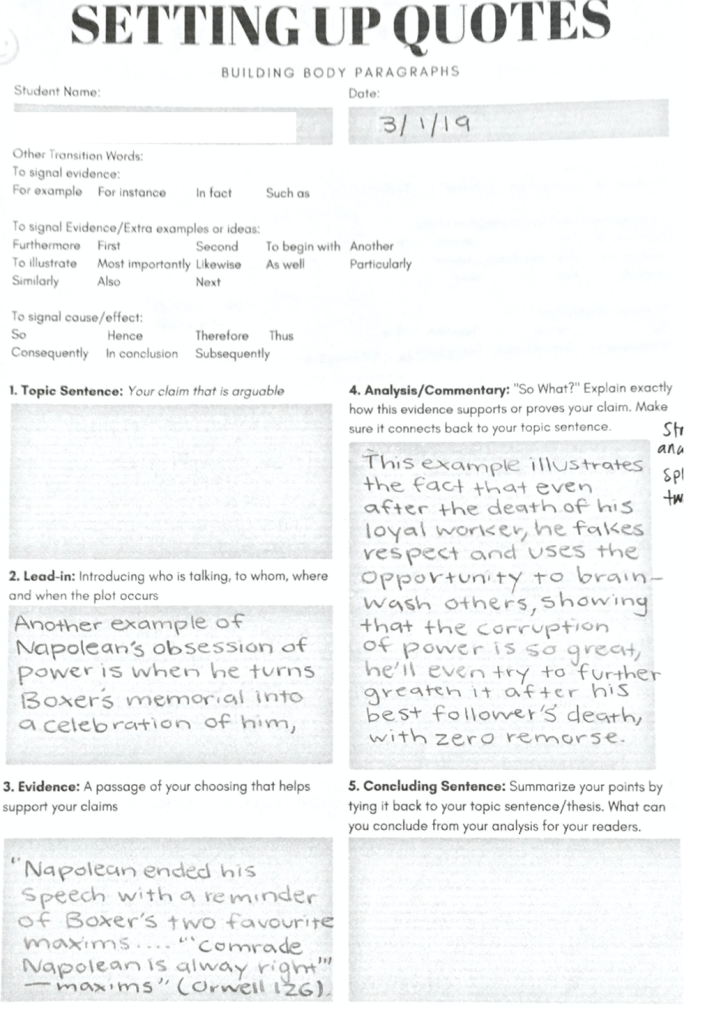 SETTING UP QUOTES
BUILDING BODY PARAGRAPHS
Student Name:
Date:
3/1/19
Other Transition Words:
To signal evidence:
For example For instance In fact Such as
To signal Evidence/Extra examples or ideas:
Furthermore First Second To begin with Another
To illustrate Most importantly Likewise As well Particularly
Similarly Also Next
To signal cause/effect:
So Hence Therefore Thus
Consequently In conclusion Subsequently
1. Topic Sentence: Your claim that is arguable
2. Lead-in: Introducing who is talking, to whom, where
and when the plot occurs
Another example of
Napolean's obsession of
power is when he turns
Boxer's memorial into
a celebration of him,
3. Evidence: A passage of your choosing that helps
support your claims
"Napolean ended his
speech with a reminder
of Boxer's two favourite
maxims.... "'comrade
Napolean is alway right'"
— maxims" (Orwell 126).
4. Analysis/Commentary: "So What?" Explain exactly
how this evidence supports or proves your claim. Make
sure it connects back to your topic sentence.
This example illustrates
the fact that even
after the death of his
loyal worker, he fakes
respect and uses the
opportunity to brain-
wash others, showing
that the corruption
of power is so great,
he'll even try to further
greaten it after his
best follower's death,
with zero remorse.
5. Concluding Sentence: Summarize your points by
tying it back to your topic sentence/thesis. What can
you conclude from your analysis for your readers.